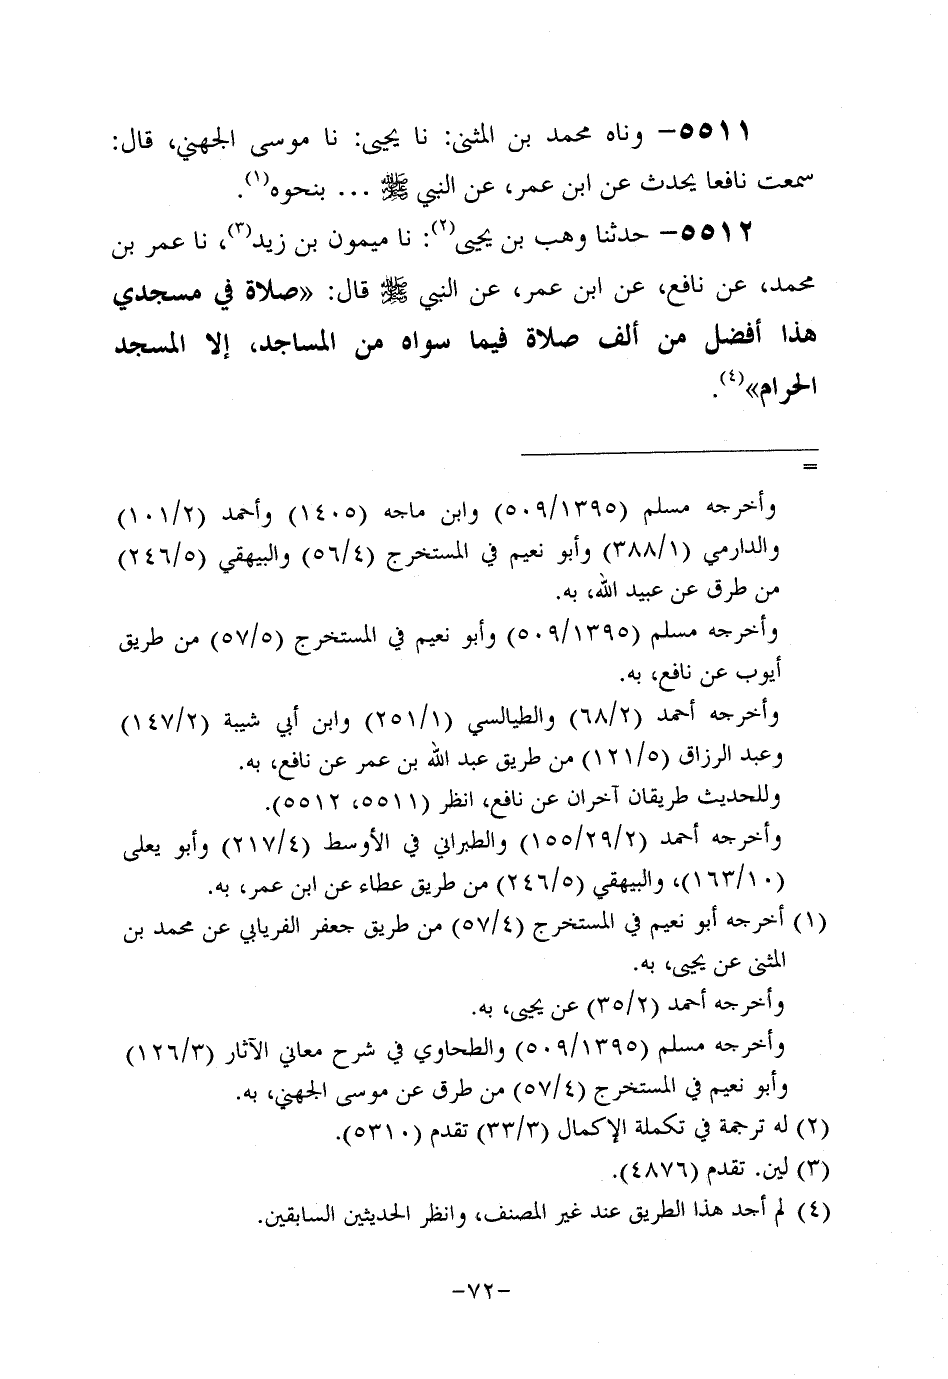 ٥٥١١- وناه محمد بن المثنى: نا يحيى: نا موسى الجهني، قال:
سمعت نافعا يحدث عن ابن عمر، عن النبي ﷺ ... بنحوه(١).
٥٥١٢- حدثنا وهب بن يحيى(٢): نا ميمون بن زيد(٣)، نا عمر بن
محمد، عن نافع، عن ابن عمر، عن النبي ﷺ قال: «صلاة في مسجدي
هذا أفضل من ألف صلاة فيما سواه من المساجد، إلا المسجد
الحرام»(٤).
=
وأخرجه مسلم (٥٠٩/١٣٩٥) وابن ماجه (١٤٠٥) وأحمد (١٠١/٢)
والدارمي (٣٨٨/١) وأبو نعيم في المستخرج (٥٦/٤) والبيهقي (٢٤٦/٥)
من طرق عن عبيد الله، به.
وأخرجه مسلم (٥٠٩/١٣٩٥) وأبو نعيم في المستخرج (٥٧/٥) من طريق
أيوب عن نافع، به.
وأخرجه أحمد (٦٨/٢) والطيالسي (٢٥١/١) وابن أبي شيبة (١٤٧/٢)
وعبد الرزاق (١٢١/٥) من طريق عبد الله بن عمر عن نافع، به.
وللحديث طريقان آخران عن نافع، انظر (٥٥١١، ٥٥١٢).
وأخرجه أحمد (١٥٥/٢٩/٢) والطبراني في الأوسط (٢١٧/٤) وأبو يعلى
(١٦٣/١٠)، والبيهقي (٢٤٦/٥) من طريق عطاء عن ابن عمر، به.
(١) أخرجه أبو نعيم في المستخرج (٥٧/٤) من طريق جعفر الفريابي عن محمد بن
المثنى عن يحيى، به.
وأخرجه أحمد (٣٥/٢) عن يحيى، به.
وأخرجه مسلم (٥٠٩/١٣٩٥) والطحاوي في شرح معاني الآثار (١٢٦/٣)
وأبو نعيم في المستخرج (٥٧/٤) من طرق عن موسى الجهني، به.
(٢) له ترجمة في تكملة الإكمال (٣٣/٣) تقدم (٥٣١٠).
(٣) لين. تقدم (٤٨٧٦).
(٤) لم أجد هذا الطريق عند غير المصنف، وانظر الحديثين السابقين.
-٧٢-